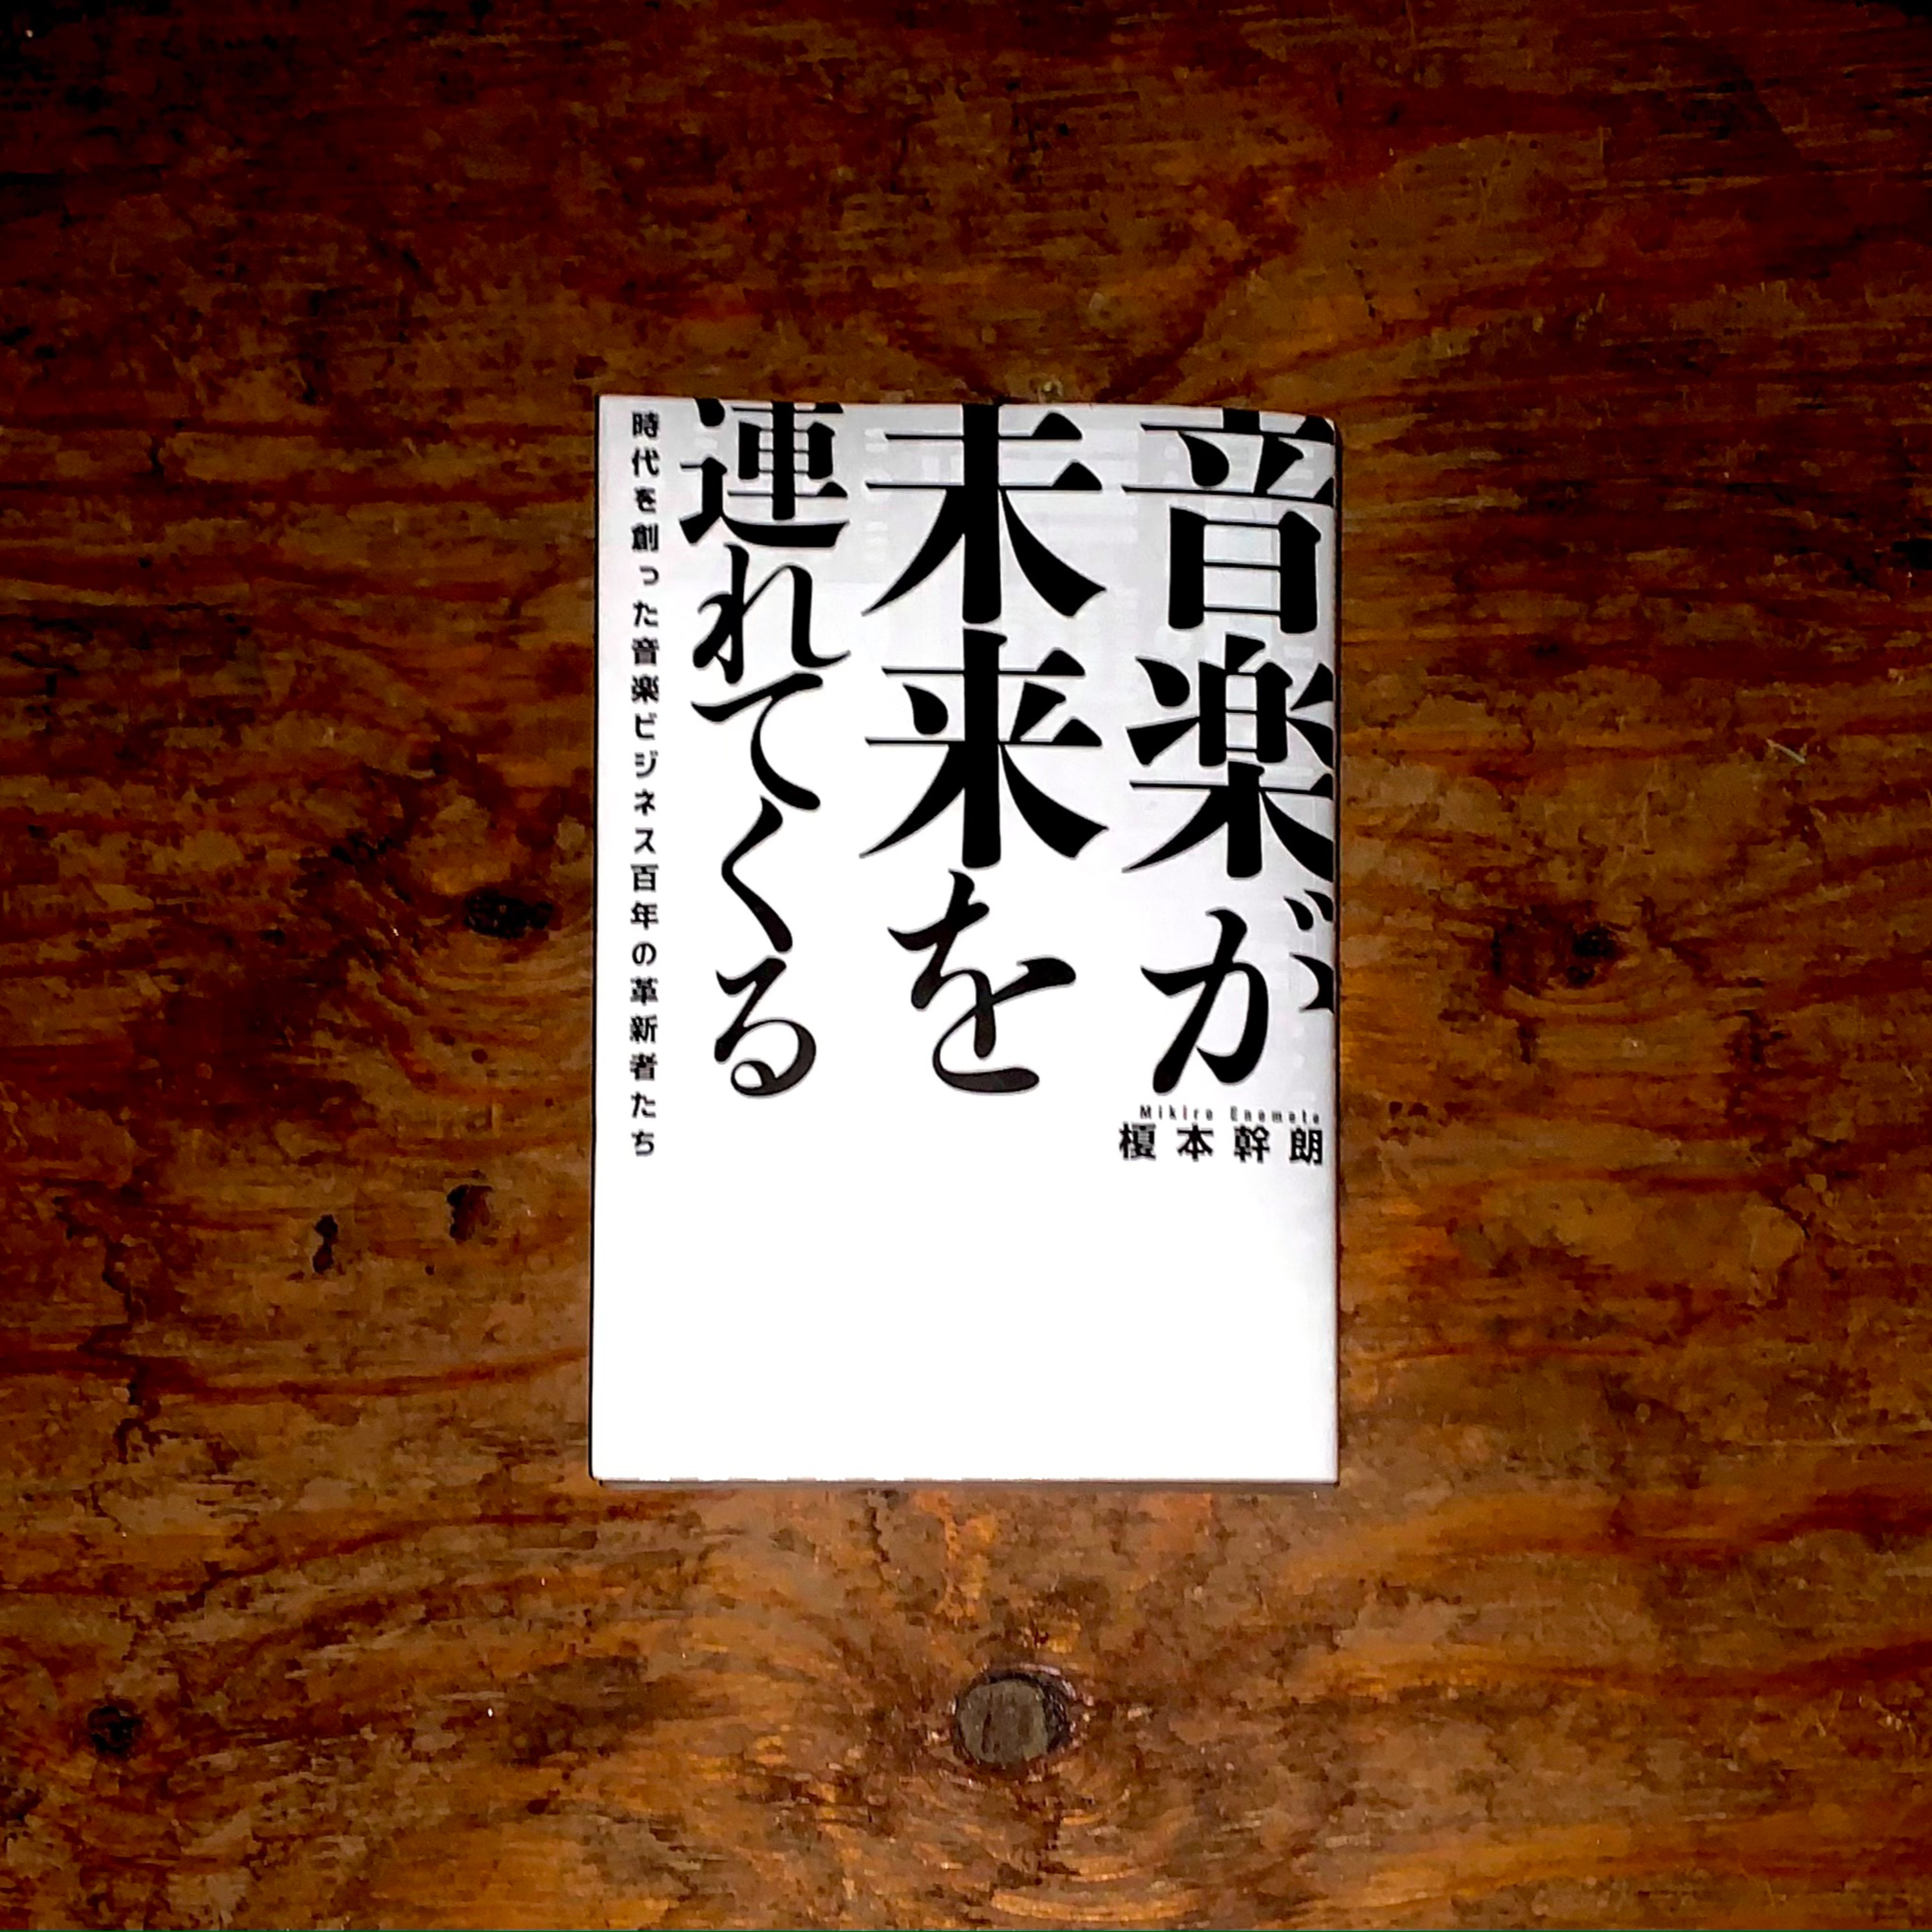 音楽が
未来を
連れてくる
時代を創った音楽ビジネス百年の革新者たち
Mikiro Enomoto
榎本幹朗